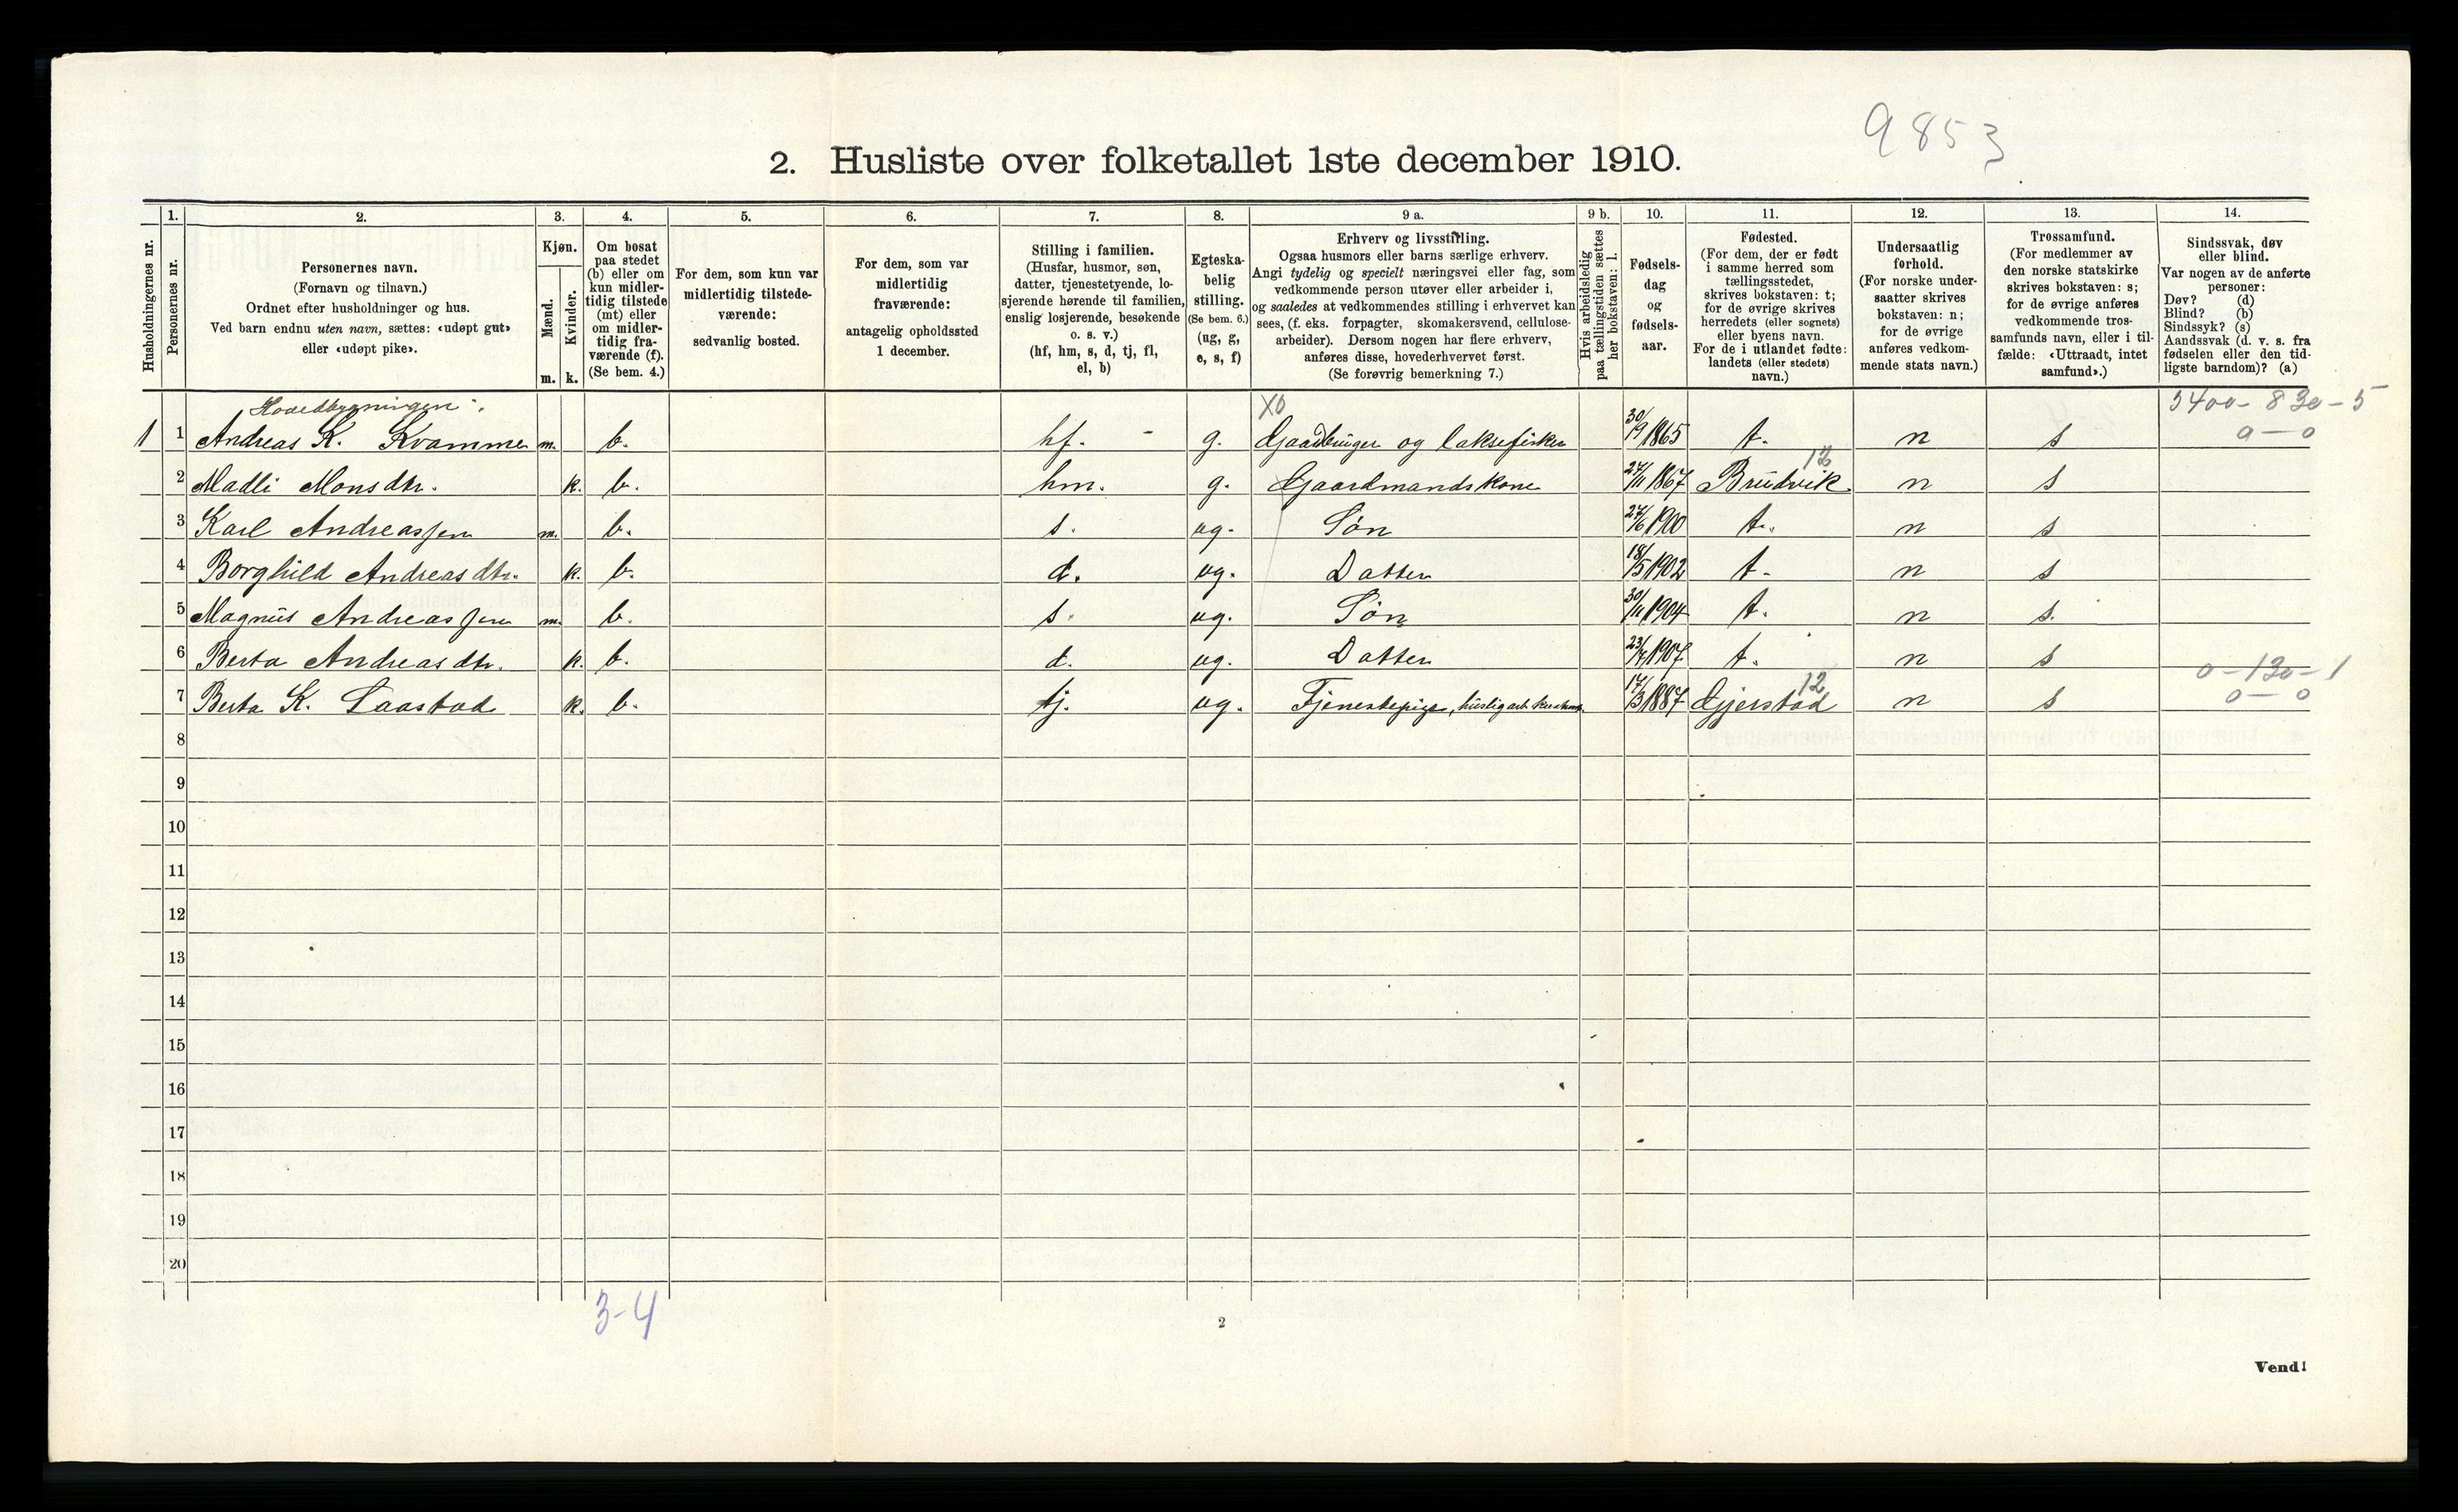 9853
2. Husliste over folketallet 1ste december 1910.
Husholdningernes nr.
1.
Personernes nr.
2.
Personernes navn.
(Fornavn og tilnavn.)
Ordnet efter husholdninger og hus.
Ved barn endnu uten navn, sættes: «udøpt gut»
eller «udøpt pike».
3.
Kjøn.
Mænd.
Kvinder.
m. k.
4.
Om bosat
paa stedet
(b) eller om
kun midler-
tidig tilstede
(mt) eller
om midler-
tidig fra-
værende (f).
(Se bem. 4.)
5.
For dem, som kun var
midlertidig tilstede-
værende:
sedvanlig bosted.
6.
For dem, som var
midlertidig
fraværende:
antagelig opholdssted
1 december.
7.
Stilling i familien.
(Husfar, husmor, søn,
datter, tjenestetyende, lo-
sjerende hørende til familien,
enslig losjerende, besøkende
o. s. v.)
(hf, hm, s, d, tj, fl,
el, b)
8.
Egteska-
belig
stilling.
(Se bem. 6.)
(ug, g,
e, s, f)
9 a.
Erhverv og livsstilling.
Ogsaa husmors eller barns særlige erhverv.
Angi tydelig og specielt næringsvei eller fag, som
vedkommende person utøver eller arbeider i,
og saaledes at vedkommendes stilling i erhvervet kan
sees, (f. eks. forpagter, skomakersvend, cellulose-
arbeider). Dersom nogen har flere erhverv,
anføres disse, hovederhvervet først.
(Se forøvrig bemerkning 7.)
9 b.
Hvis arbeidsledig
paa tællingstiden sættes
her bokstaven: l.
10.
Fødsels-
dag
og
fødsels-
aar.
11.
Fødested.
(For dem, der er født
i samme herred som
tællingsstedet,
skrives bokstaven: t;
for de øvrige skrives
herredets (eller sognets)
eller byens navn.
For de i utlandet fødte:
landets (eller stedets)
navn.)
12.
Undersaatlig
forhold.
(For norske under-
saatter skrives
bokstaven: n;
for de øvrige
anføres vedkom-
mende stats navn.)
13.
Trossamfund.
(For medlemmer av
den norske statskirke
skrives bokstaven: s;
for de øvrige anføres
vedkommende tros-
samfunds navn, eller i til-
fælde: «Uttraadt, intet
samfund».)
14.
Sindssvak, døv
eller blind.
Var nogen av de anførte
personer:
Døv? (d)
Blind? (b)
Sindssyk? (s)
Aandssvak (d. v. s. fra
fødselen eller den tid-
ligste barndom)? (a)
Hovedbygningen
X0
5400-830-5
0-0
1 1 Andreas K. Kvamme m. b. hf. - g. Gaardbruger og laksefisker 30/9 1865 t. n s
2 Madli Monsdtr. k. b. hm. g. Gaardmandskone 27/11 1867 Brudvik 12 n s
3 Karl Andreassen m. b. s. ug. Søn 27/6 1900 t. n s
4 Borghild Andreasdtr. k. b. d. ug. Datter 18/5 1902 t. n s
5 Magnus Andreassen m. b. s. ug. Søn 30/11 1904 t. n s.
6 Berta Andreasdtr. k. b. d. ug. Datter 23/4 1907 t. n s
0-130-1
7 Berta K. Saastad k. b. tj. ug. Tjenestepige, huslig arb. 17/3 1887 Gjerstad 12 n s 0-0
8
9
10
11
12
13
14
15
16
17
18
19
20
3-4
2
Vend!